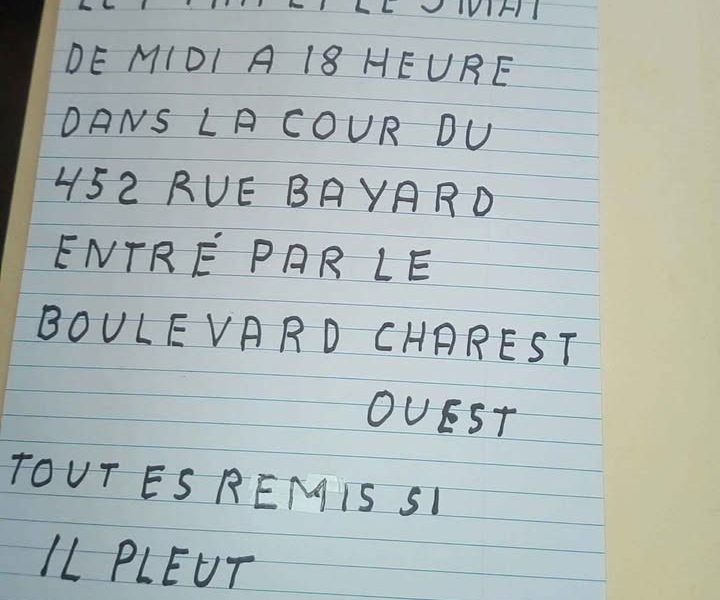 ET LE MAI
DE MIDI A 18 HEURE
DANS LA COUR DU
452 RUE BAYARD
ENTRÉ PAR LE
BOULEVARD CHAREST
OUEST
TOUT ES REMIS SI
IL PLEUT